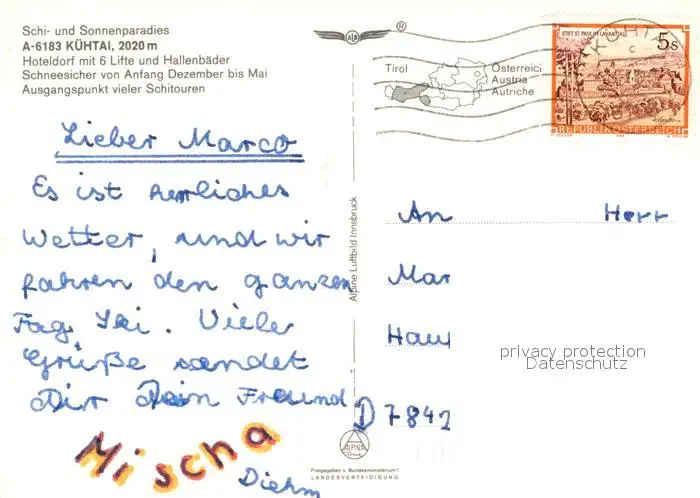 Schi- und Sonnenparadies
A-6183 KÜHTAI, 2020 m
Hoteldorf mit 6 Lifte und Hallenbäder
Schneesicher von Anfang Dezember bis Mai
Ausgangspunkt vieler Schitouren
Lieber Marco
Es ist herrliches
Wetter, und wir
fahren den ganzen
Tag Ski. Viele
Grüße sendet
Dir Dein Freund
Mischa
Diehm
Alpine Luftbild Innsbruck
ALPINA
Freigegeben v. Bundesministerium f.
LANDESVERTEIDIGUNG
®
Tirol
Österreich
Austria
Autriche
STIFT ST. PAUL IM LAVANTTAL
5s
REPUBLIK ÖSTERREICH
KÜHTAI
An Herr
Mar
Hau
D 7842
privacy protection
Datenschutz